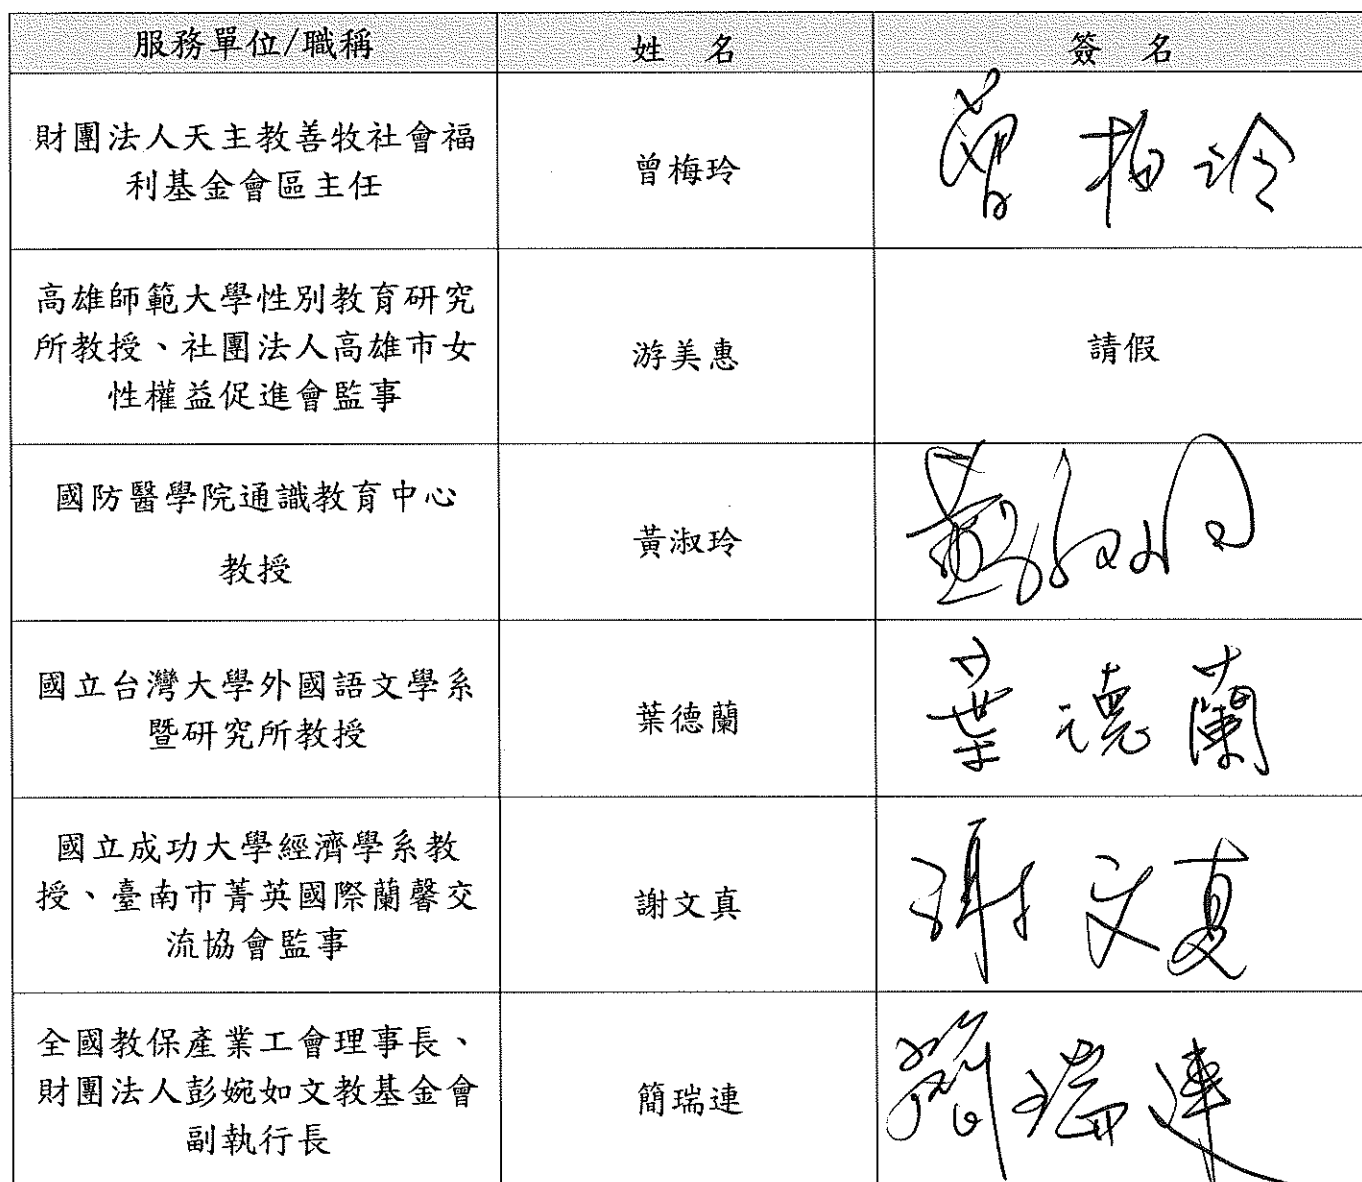 服務單位/職稱 姓 名 簽 名
財團法人天主教善牧社會福
利基金會區主任
曾梅玲
曾梅玲
高雄師範大學性別教育研究
所教授、社團法人高雄市女
性權益促進會監事
游美惠
請假
國防醫學院通識教育中心
教授
黃淑玲
黃淑玲
國立台灣大學外國語文學系
暨研究所教授
葉德蘭
葉德蘭
國立成功大學經濟學系教
授、臺南市菁英國際蘭馨交
流協會監事
謝文真
謝文真
全國教保產業工會理事長、
財團法人彭婉如文教基金會
副執行長
簡瑞連
簡瑞連